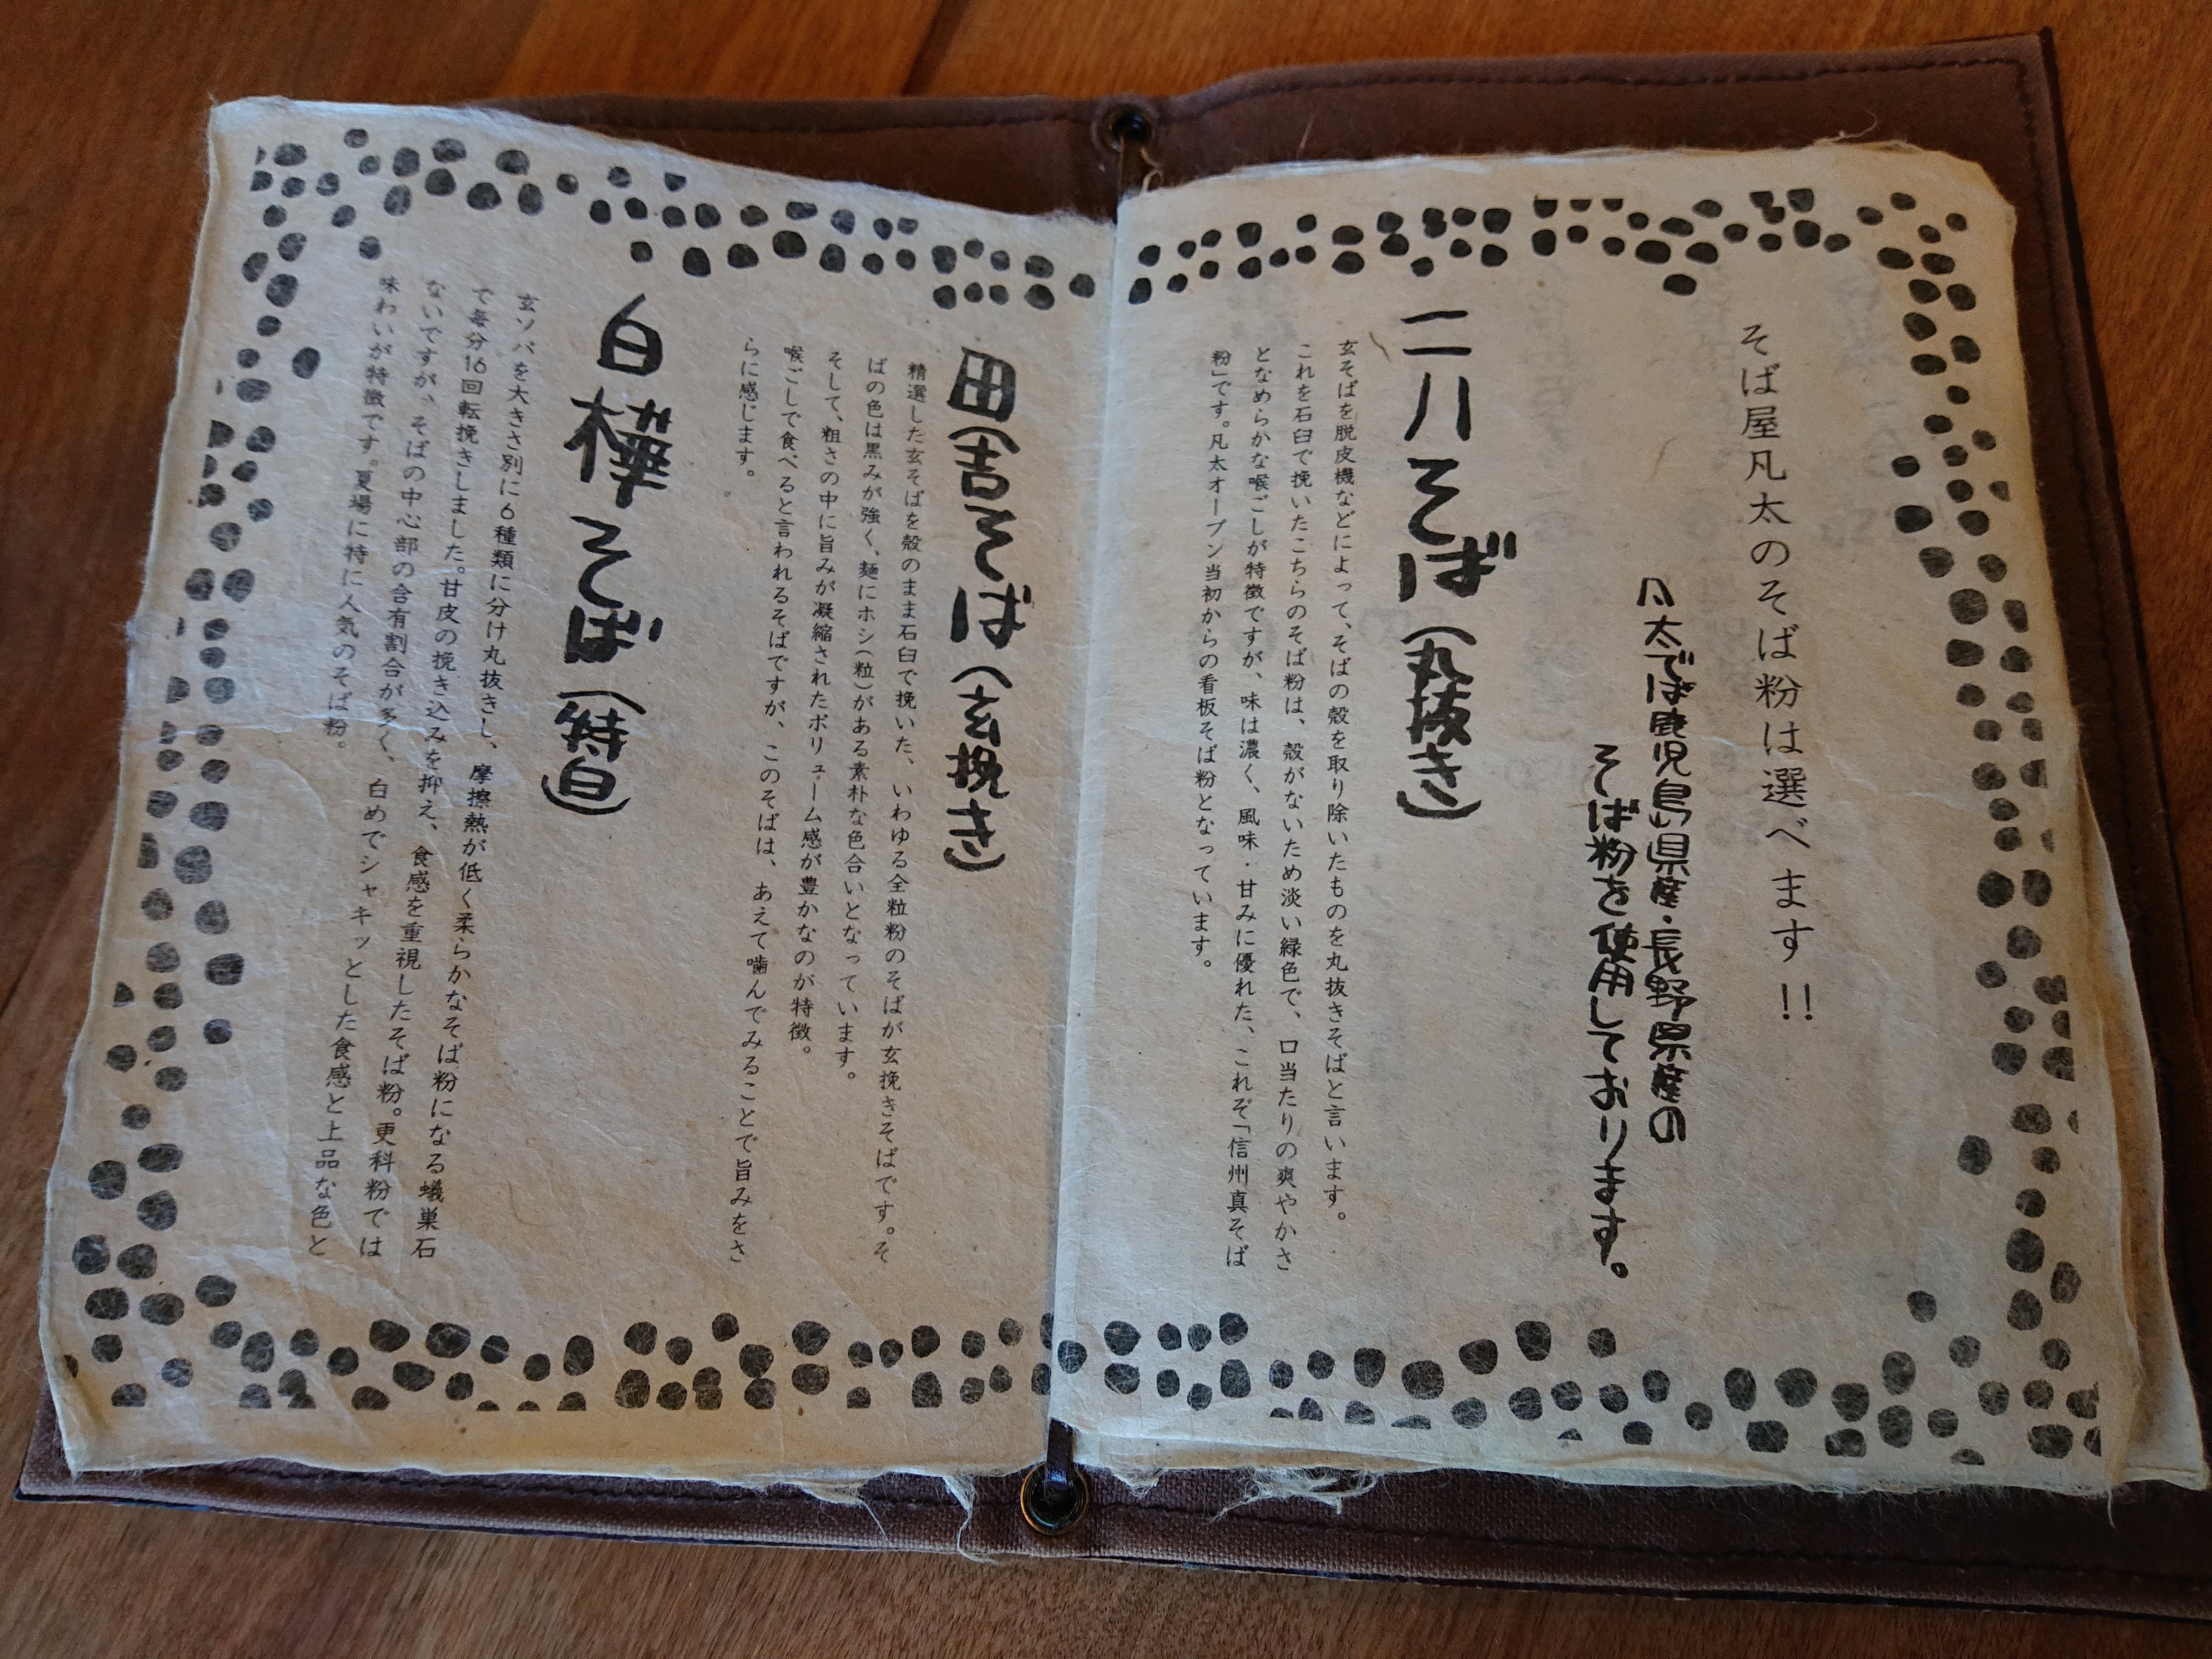 そば屋凡太のそば粉は選べます!!
凡太では鹿児島県産・長野県産の
そば粉を使用しております。
二八そば(丸抜き)
玄そばを脱皮機などによって、そばの殻を取り除いたものを丸抜きそばと言います。
これを石臼で挽いたこちらのそば粉は、殻がないため淡い緑色で、口当たりの爽やかさ
となめらかな喉ごしが特徴ですが、味は濃く、風味・甘みに優れた、これぞ「信州真そば
粉」です。凡太オープン当初からの看板そば粉となっています。
田舎そば(玄挽き)
精選した玄そばを殻のまま石臼で挽いた、いわゆる全粒粉のそばが玄挽きそばです。そ
ばの色は黒みが強く、麺にホシ(粒)がある素朴な色合いとなっています。
そして、粗さの中に旨みが凝縮されたボリューム感が豊かなのが特徴。
喉ごしで食べると言われるそばですが、このそばは、あえて噛んでみることで旨みをさ
らに感じます。
白樺そば(特白)
玄ソバを大きさ別に6種類に分け丸抜きし、摩擦熱が低く柔らかなそば粉になる蟻巣石
で毎分16回転挽きしました。甘皮の挽き込みを抑え、食感を重視したそば粉。更科粉では
ないですが、そばの中心部の含有割合が多く、白めでシャキッとした食感と上品な色と
味わいが特徴です。夏場に特に人気のそば粉。